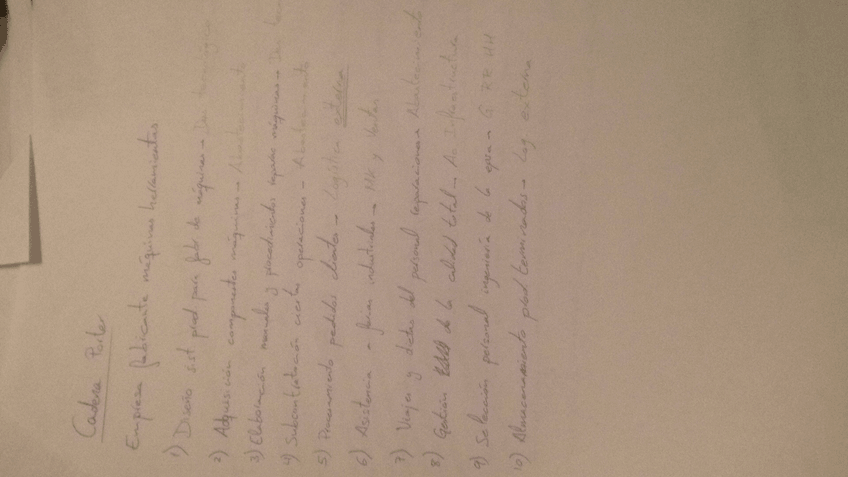 Cadena Porter
Empresa fabricante máquinas herramientas
1) Diseño sist prod para fabr de máquinas → Des tecnológico
2) Adquisición componentes máquinas → Abastecimiento
3) Elaboración manuales y procedimientos máquinas → Des
4) Subcontratación ciertas operaciones → Abastecimiento
5) Procesamiento pedidos clientes → Logística externa
6) Asistencia a ferias industriales → MK y Ventas
7) Viajes y dietas del personal reparaciones → Abastecimiento
8) Gestión de la calidad total → Infraestructura
9) Selección personal ingeniería de la → G RR HH
10) Almacenamiento prod terminados → Log externa